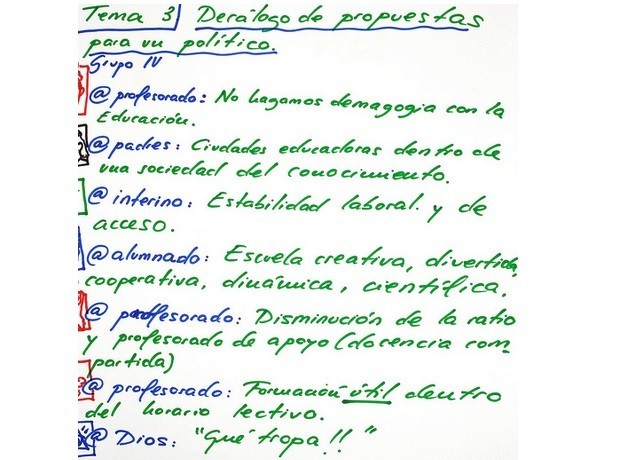 Tema 3 Decálogo de propuestas
para un político.
Grupo IV
@ profesorado: No hagamos demagogia con la
Educación.
@ padres: Ciudades educadoras dentro de
una sociedad del conocimiento.
@ interino: Estabilidad laboral. y de
acceso.
@ alumnado: Escuela creativa, divertida,
cooperativa, dinámica, científica.
@ profesorado: Disminución de la ratio
y profesorado de apoyo (docencia com_
partida)
@ profesorado: Formación útil dentro
del horario lectivo.
@ Dios: "Qué tropa!!"